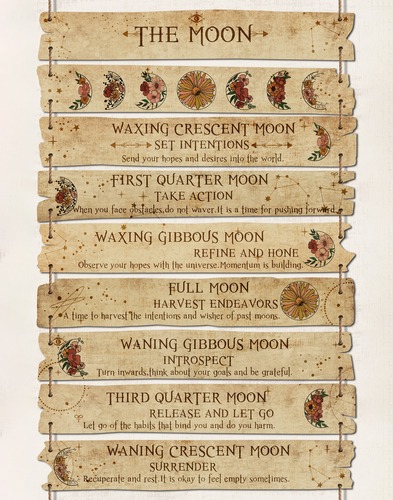 THE MOON
WAXING CRESCENT MOON
SET INTENTIONS
Send your hopes and desires into the world.
FIRST QUARTER MOON
TAKE ACTION
When you face obstacles,do not waver.It is a time for pushing forward.
WAXING GIBBOUS MOON
REFINE AND HONE
Observe your hopes with the universe.Momentum is building.
FULL MOON
HARVEST ENDEAVORS
A time to harvest the intentions and wisher of past moons.
WANING GIBBOUS MOON
INTROSPECT
Turn inwards,think about your goals and be grateful.
THIRD QUARTER MOON
RELEASE AND LET GO
Let go of the habits that bind you and do you harm.
WANING CRESCENT MOON
SURRENDER
Recuperate and rest.It is okay to feel empty sometimes.